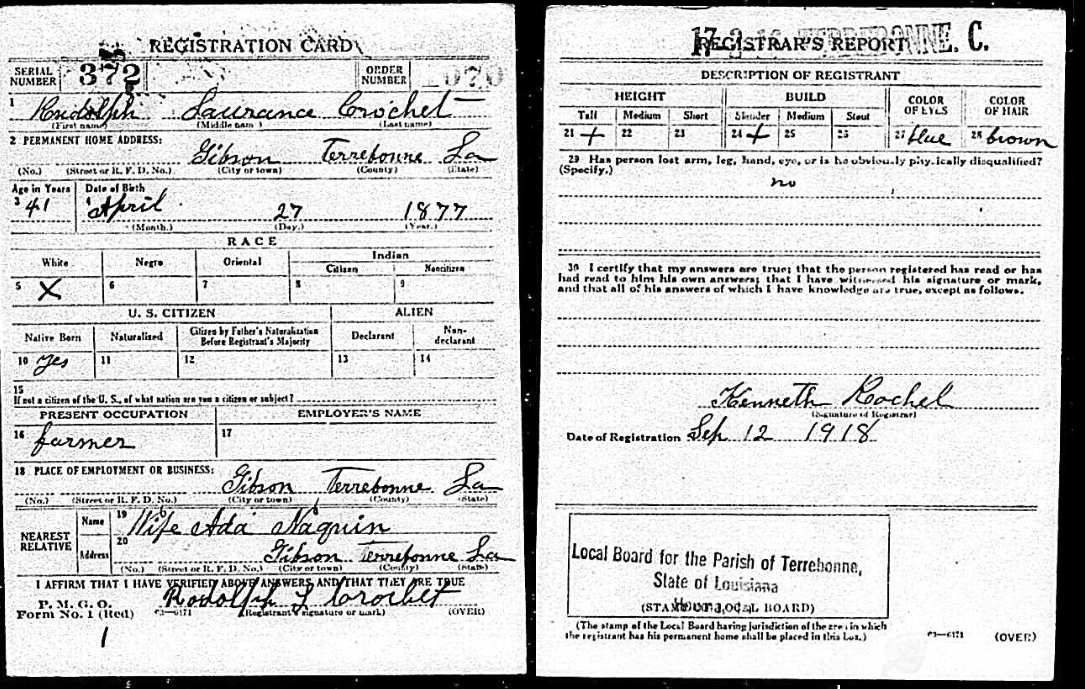 REGISTRATION CARD
SERIAL NUMBER 372 ORDER NUMBER
1 Rudolph Laurance Crochet
(First name) (Middle name) (Last name)
2 PERMANENT HOME ADDRESS:
Gibson Terrebonne La
(No.) (Street or R. F. D. No.) (City or town) (County) (State)
Age in Years Date of Birth
3 41 4 April 27 1877
(Month.) (Day.) (Year.)
RACE
White Negro Oriental Indian
Citizen Noncitizen
5 X 6 7 8 9
U. S. CITIZEN ALIEN
Native Born Naturalized Citizen by Father's Naturalization Before Registrant's Majority Declarant Non-declarant
10 Yes 11 12 13 14
15
If not a citizen of the U. S., of what nation are you a citizen or subject?
PRESENT OCCUPATION EMPLOYER'S NAME
16 farmer 17
18 PLACE OF EMPLOYMENT OR BUSINESS:
Gibson Terrebonne La
(No.) (Street or R. F. D. No.) (City or town) (County) (State)
NEAREST RELATIVE Name 19 Wife Ada Naquin
Address 20 Gibson Terrebonne La
(No.) (Street or R. F. D. No.) (City or town) (County) (State)
I AFFIRM THAT I HAVE VERIFIED ABOVE ANSWERS AND THAT THEY ARE TRUE
P. M. G. O.
Form No. 1 (Red) 03—6171 Rodolph L Crochet
(Registrant's signature or mark) (OVER)
1
REGISTRAR'S REPORT
DESCRIPTION OF REGISTRANT
HEIGHT BUILD COLOR OF EYES COLOR OF HAIR
Tall Medium Short Slender Medium Stout
21 + 22 23 24 + 25 26 27 blue 28 brown
29 Has person lost arm, leg, hand, eye, or is he obviously physically disqualified?
(Specify.)
no
30 I certify that my answers are true; that the person registered has read or has
had read to him his own answers; that I have witnessed his signature or mark,
and that all of his answers of which I have knowledge are true, except as follows.
Kenneth Rochel
(Signature of Registrar)
Date of Registration Sep 12 1918
Local Board for the Parish of Terrebonne,
State of Louisiana
Houma, La.
(STAMP OF LOCAL BOARD)
(The stamp of the Local Board having jurisdiction of the area in which
the registrant has his permanent home shall be placed in this box.)
03—6171 (OVER)